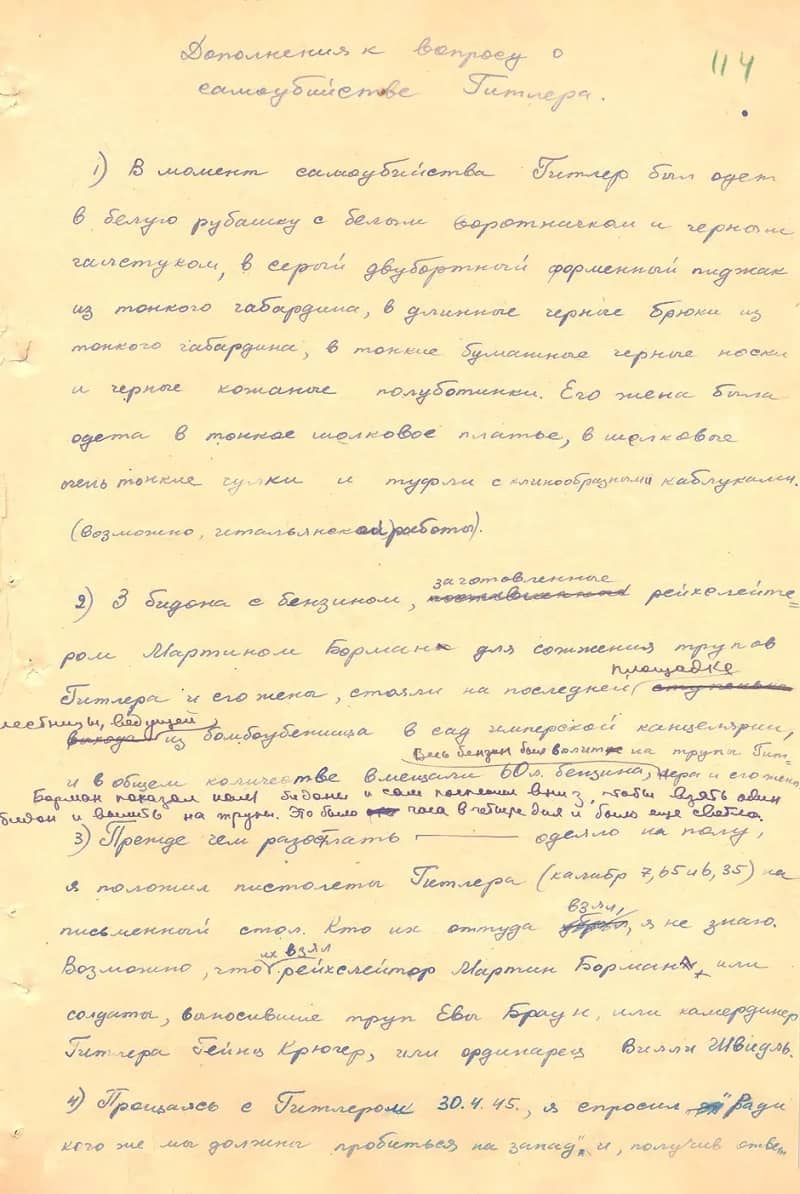 114
Дополнения к вопросу о
самоубийстве Гитлера.
1) В момент самоубийства Гитлер был одет
в белую рубашку с белым воротничком и черным
галстуком, в серый двубортный форменный пиджак
из тонкого габардина, в длинные черные брюки из
тонкого габардина, в тонкие бумажные черные носки
и черные кожаные полуботинки. Его жена была
одета в тонкое шелковое платье, в шелковые
очень тонкие чулки и туфли с клинообразными каблуками.
(возможно, итальянской работы).
заготовленные
2) 3 бидона с бензином, рейхслейте=
ром Мартином Борман для сожжения трупов
площадке
Гитлера и его жены, стояли на последней
лестницы, ведущей
из бомбоубежища в сад имперской канцелярии,
Весь бензин был вылит на трупы Гит=
и в общем количестве вмещали 60 л. бензина, лера и его жены
Борман показал нам бидоны и сам поспешил вниз, чтобы взять один
бидон и вылить на трупы. Это было часа в четыре дня и было еще светло.
3) Прежде чем разостлать одеяло на полу,
я положил пистолеты Гитлера (калибр 7,65 и 6,35) на
взял,
письменный стол. Кто их оттуда я не знаю.
их взял
Возможно, что рейхслейтор Мартин Борман, или
солдаты, выносившие труп Евы Браун, или камердинер
Гитлера Гейнц Крюгер, или ординарец Вилли Швидль.
4) Прощаясь с Гитлером 30.4.45., я спросил "Ради
кого же мы должны пробиться на запад" и, получив ответ